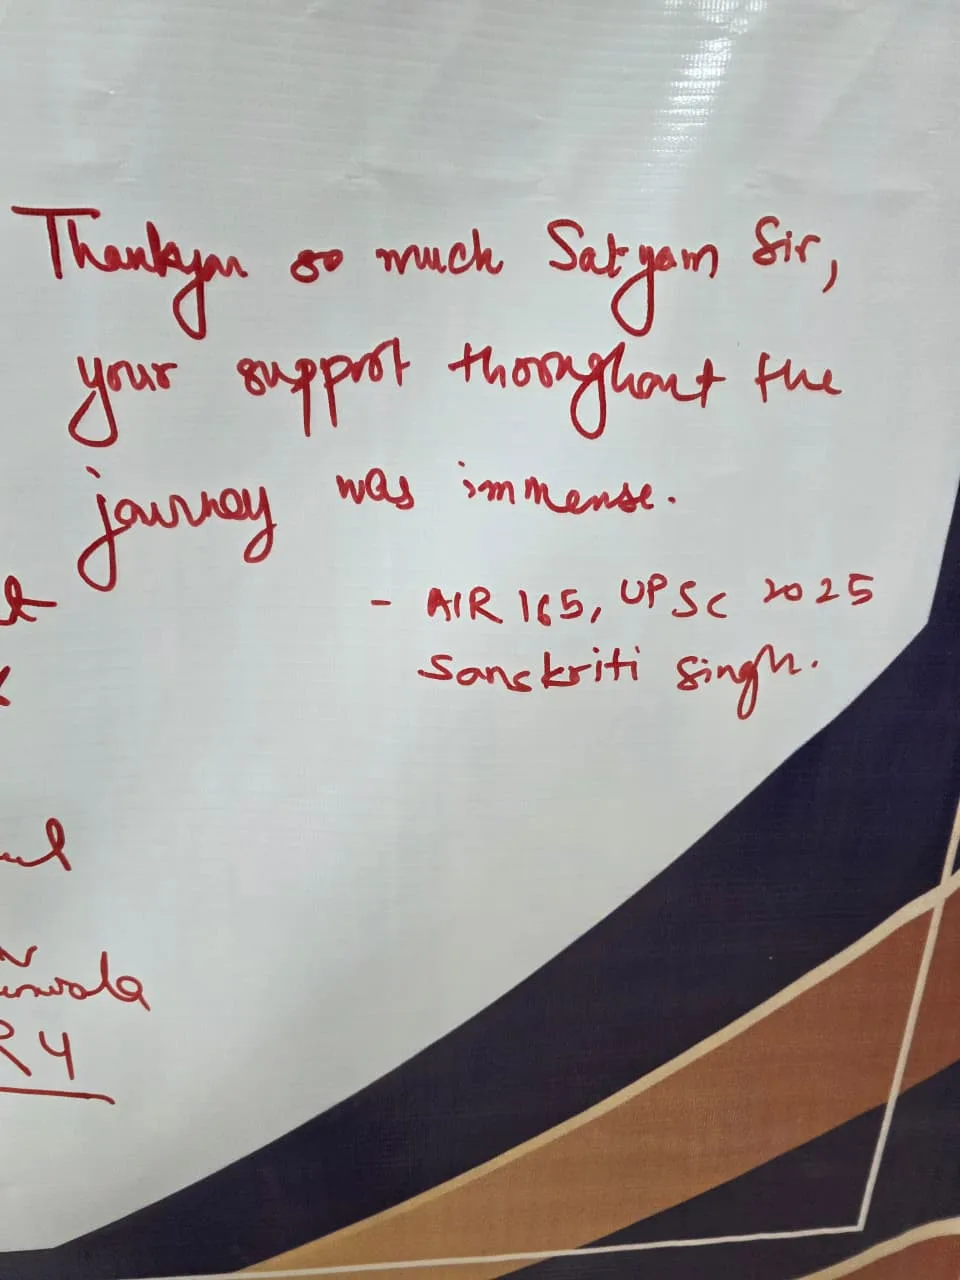 Thankyou so much Satyam Sir,
your support thoroughout the
journey was immense.
- AIR 165, UPSC 2025
Sanskriti Singh.
R 4